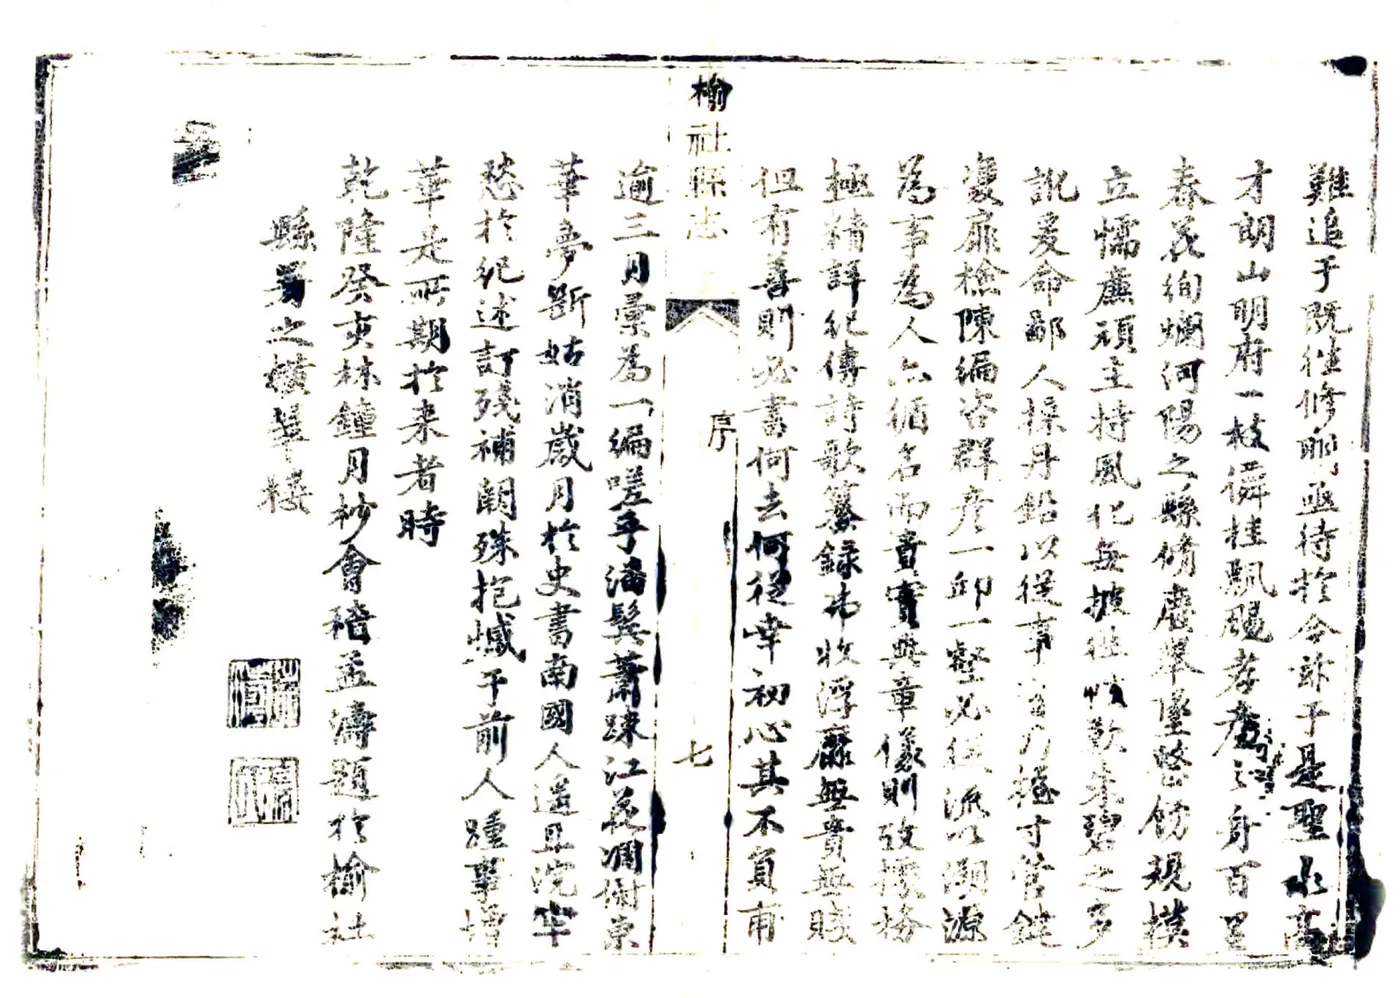 難追于既往修明亟待於今茲于是聖水高
才朗山明府一枝儕桂飄颺孝廉之身百里
春花絢爛河陽之縣脩廢舉墜整飭規模
立懦廉頑主持風化每披往帙歎朱碧之多
訛爰命鄙人操丹鉛以從事 寸管鍵
雙扉檢陳編咨群彥一邱一壑必從流以溯源
為事為人亦循名而責實典章儀則攷據務
極精詳紀傳詩歌纂錄弗收浮靡無貴無賤
但有善則必書何去何從幸初心其不負甫
逾三月彙為一編嗟乎潘鬢蕭疎江花凋謝東
華夢斷姑消歲月於史書南國人遙且浣牢
愁於紀述訂殘補闕殊抱憾于前人踵事增
華是所期於來者時
乾隆癸亥林鐘月杪會稽孟濤題於榆社
縣署之橫翠樓
榆社縣志
序
七